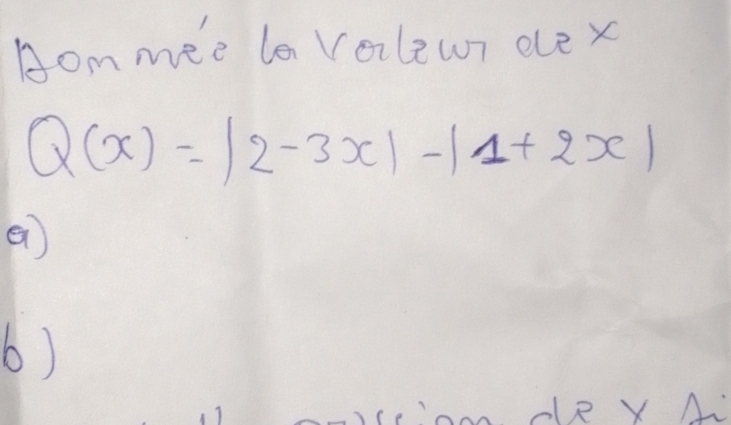 Donnée la Valeur de x
Q(x) = |2-3x| -|1+2x|
a)
b)
de x si